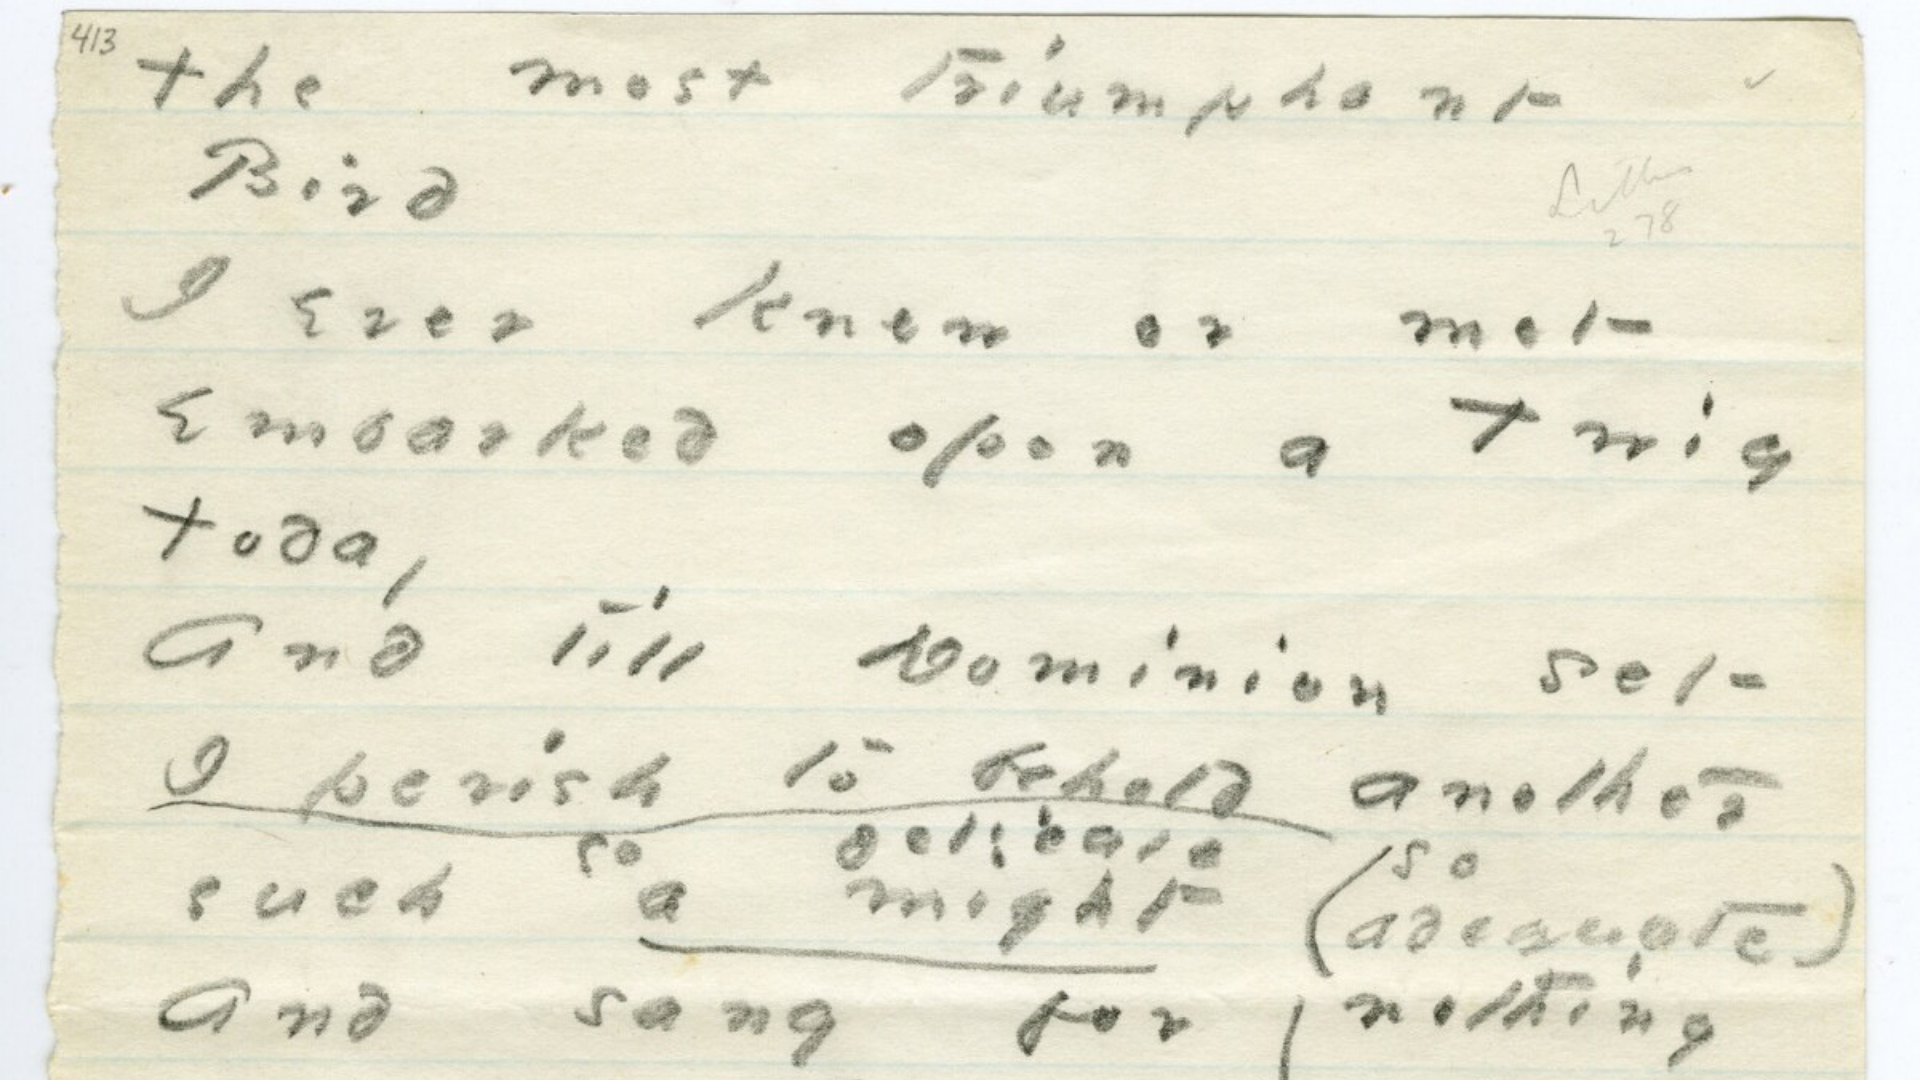 413
The most Triumphant
Bird
I Ever knew or met -
Embarked opon a Twig
today
And till Dominion set -
I perish to behold another
so delicate
such a might (so adequate)
And sang for nothing
278